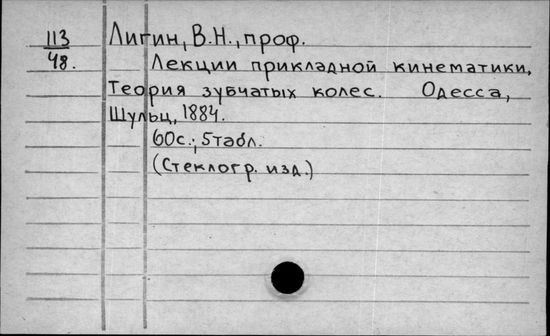 113
48.
Лигин, В.Н., проф.
Лекции прикладной кинематики,
Теория зубчатых колес. Одесса,
Шульц, 1884.
60с.; 5табл.
(Стеклогр. изд.)